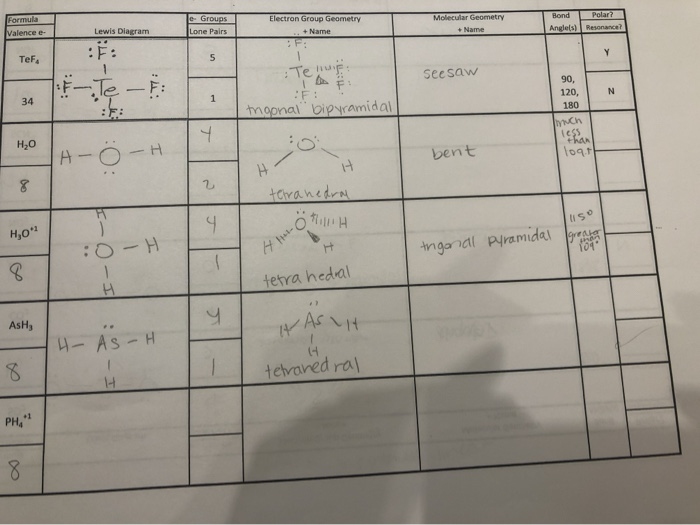 Formula
Valence e-
Lewis Diagram
e- Groups
Lone Pairs
Electron Group Geometry
+ Name
Molecular Geometry
+ Name
Bond
Angle(s)
Polar?
Resonance?
TeF₄
34
:F:
:F-Te-F:
:F:
5
1
:F:
:Te F:
:F:
trigonal bipyramidal
seesaw
90,
120,
180
Y
N
H₂O
8
H-O-H
4
2
:O:
H H
bent
much
less
than
H₃O⁺¹
8
H
:O-H
H
4
1
O H
H H
tetrahedral
trigonal pyramidal
115°
greater
than
109°
AsH₃
8
H-AS-H
H
4
1
H As H
H
PH₄⁺¹
8